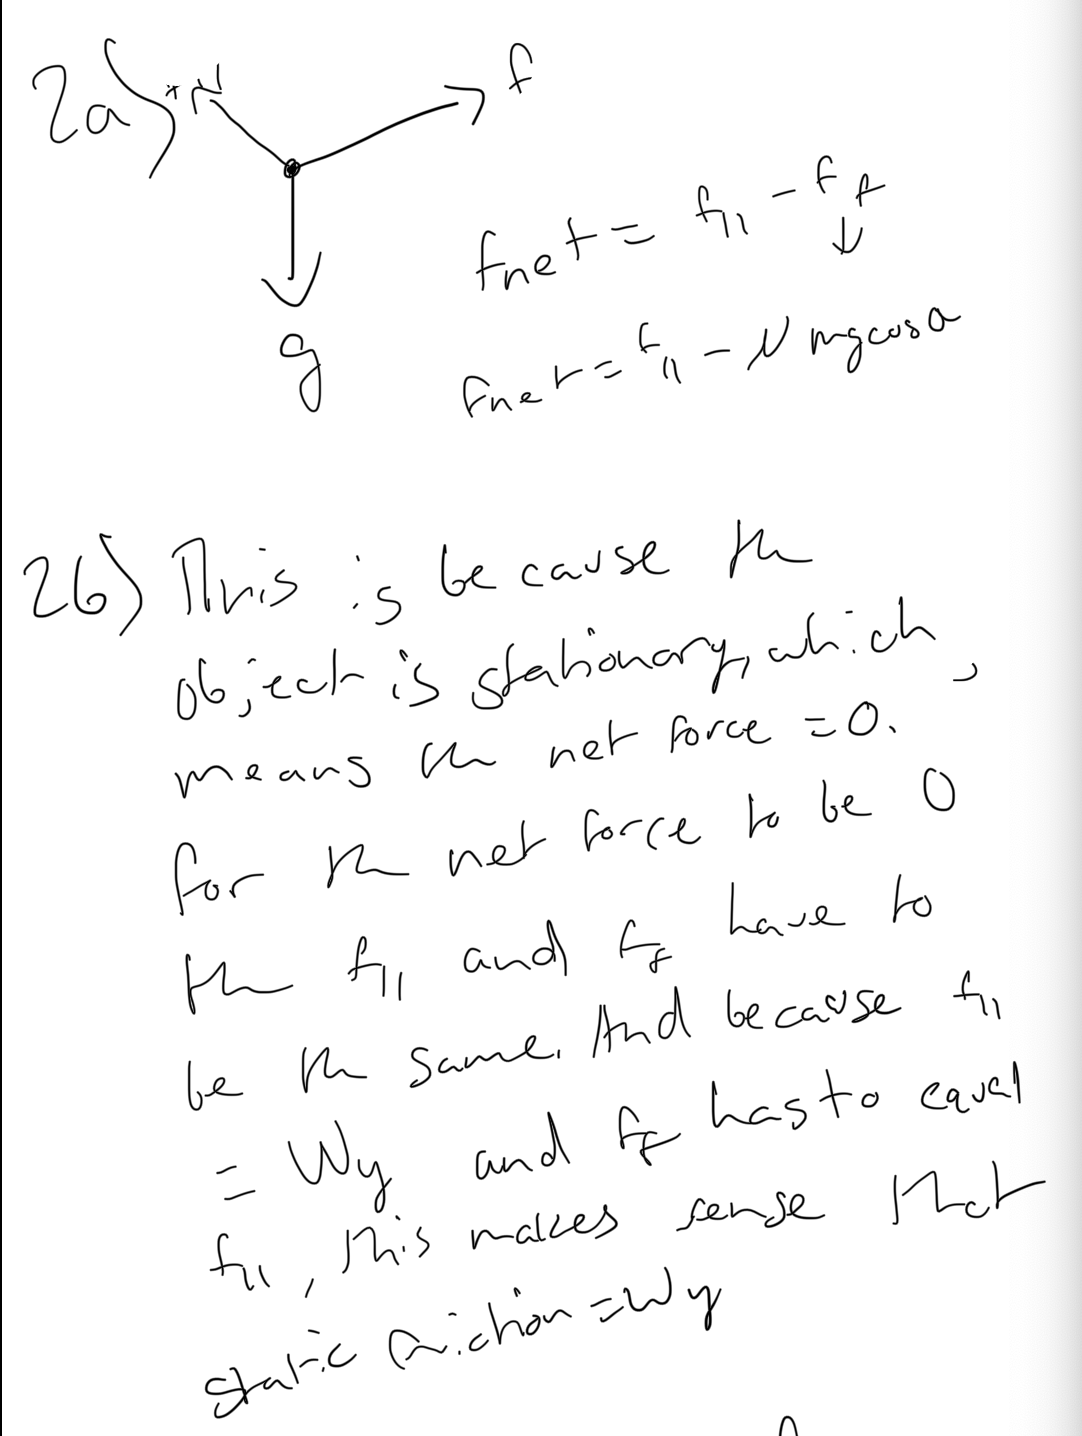 2a)
N
f
g
Fnet = F11 - Ff
↓
Fnet = F11 - N mgcosa
2b) This is because the
object is stationary, which,
means the net force = 0.
for the net force to be 0
the F11 and Ff have to
be the same. And because F11
= Wy and Ff has to equal
F11, this makes sense that
static friction = Wy